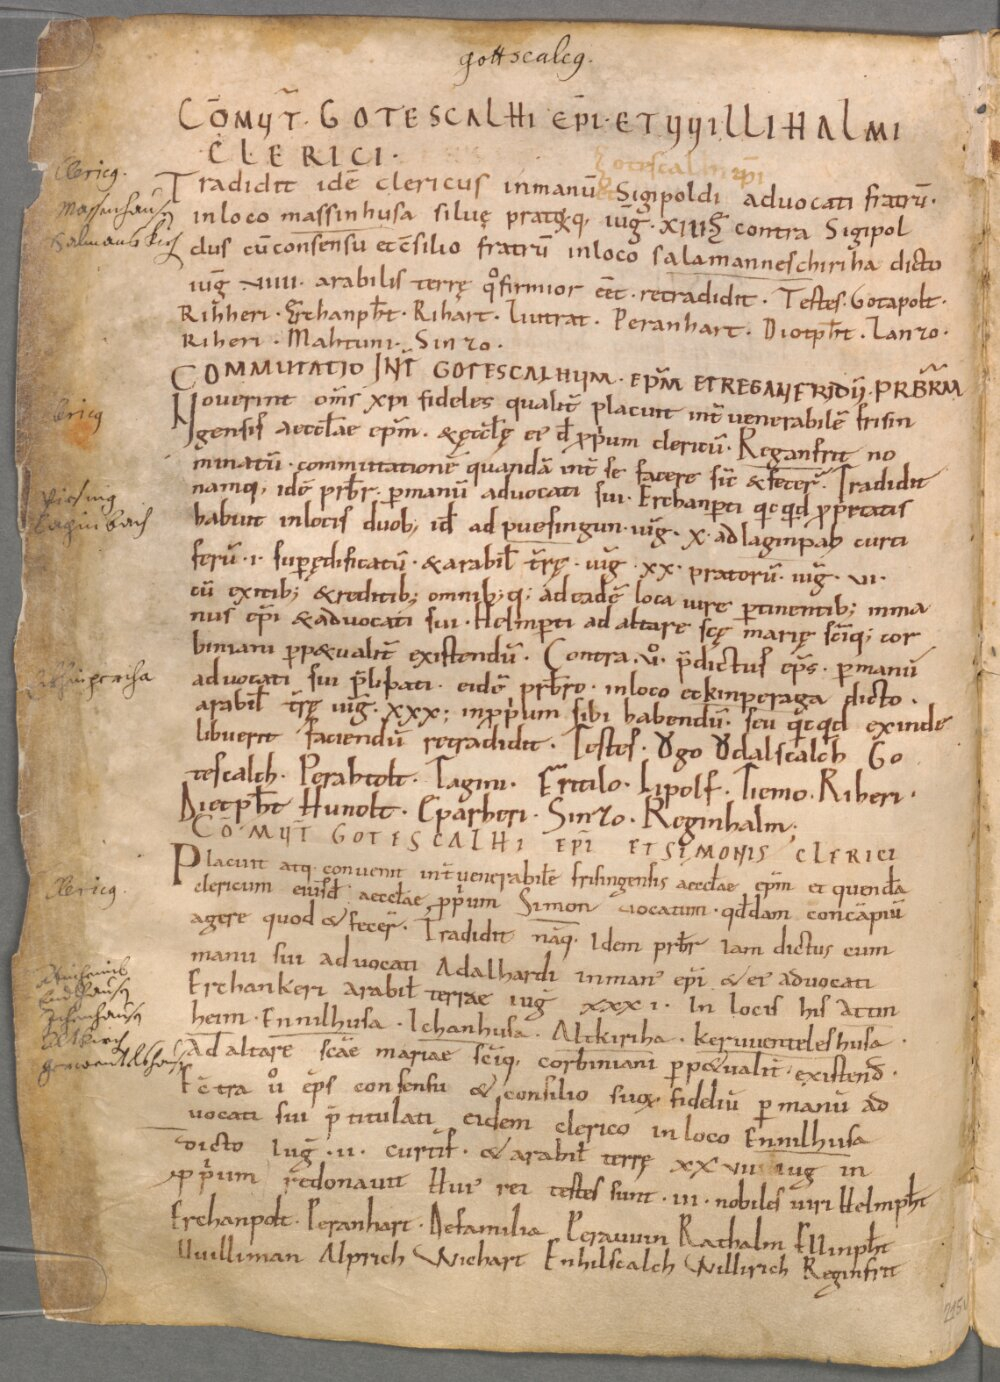 gottscalcg.
COM̄VT̄. GOTESCALHI EP̄I. ET VVILLIHALMI
CLERICI.
Clericg.
Tradidit idē clericus inmanū Sigipoldi advocati fratrū.
Massenhausen
inloco massinhusa silvę pratoꝝq; iug̅. XIIII contra Sigipol
dus cū consensu et c̄silio fratrū inloco salamanneschiriha dicto
iug̅ VIIII. arabilis terrę qͦ firmior eēt. retradidit. Testes. Gotapolt.
Rihheri. Erchanpħt. Rihart. Liutrat. Peranhart. Diotpħt. Lanzo.
Riheri. Mahtuni. Sinzo.
COMMUTATIO INT̄ GOTESCALHUM. EPM̄ ET REGANFRIDŪ. PRBRM̄
Noverint om̅s xpi fideles qualit̄ placuit int̄ venerabilē frisin
gensis aeccl̄ae epm̄. & ęccl̄ę ei͛ đ ꝓp̍um clericū. Reganfrit no
minatū. commutationē quandā int̄ se facere sic̄ & fecer̄. Tradidit
namq; idē prb̄r. ꝑmanū advocati sui. Erchanꝑti qicqͥd ꝓp̍etatis
habuit inlocis duob; id̄ ad puesingun. iug̅. X. ad laginpah curti
ferū. I. suꝑędificatū. & arabil̄ t̄rę. iug̅. XX. pratorū. iug̅. VI.
cū exitib; & reditib; omnib;q; ad eadē loca iure ꝑtinentib; inma
nus ep̄i & advocati sui. Helmꝑti ad altare sc̄ę marię sc̄iq; cor
biniani ꝑp&ualit̄ existendū. Contra. v̊. p̄dictus ep̄s. ꝑmanū
advocati sui p̄libati. eidē prb̄ro. inloco etkinperaga dicto.
arabil̄ t̄rę iug̅. XXX; inꝓp̍um sibi habendū. seu qͥcqͥd exinde
libuerit faciendū retradidit. Testes. Ŏgo Ŏdalscalch Go
tescalch. Perahtolt. Tagini. Ertilo. Lipolf. Tiemo. Riheri.
Diotpħt Hunolt. Eparheri. Sinzo. Reginhalm;
COM̄VT GOTESCALHI EP̄I ET SIMONIS CLERICI
Clericg.
Placuit atq. convenit int̄ venerabilē frisingensis aeccl̄ae epm̄ et quendā
clericum eiusđ aeccl̄ae ꝓp̍um Simon vocatum. qđdam concāpiū
agere quod & fecer̄. Tradidit nāq. Idem prb̄r iam dictus cum
manu sui advocati Adalhardi in man͛ ep̄i & ei͛ advocati
Erchankeri arabil̄ terrae iug̅ XXXI. In locis his Attin
heim. Ennilhusa. Ichanhusa. Altkiriha. Keruuenteleshusa.
Ad altarē sc̄ae mariae sc̄iq. corbiniani ꝑp&ualit̄ existend̄.
Ec̄tra v̊ ep̄s consensu & consilio suoꝝ fideliū ꝑmanū ad
vocati sui p̄titulati eidem clerico in loco Ennilhusa
dicto iug̅. II. curtif̄. & arabil̄ terrę XXVII iug̅ in
ꝓp̍um redonavit Hui͛ rei testes sunt. III. nobiles viri Helmpħt
Erchanpolt. Peranhart. De familia Perauuin Rathalm Ellinpħt
Uuilliman Alprich Wichart Enhilscalch Willirich Reginfrit